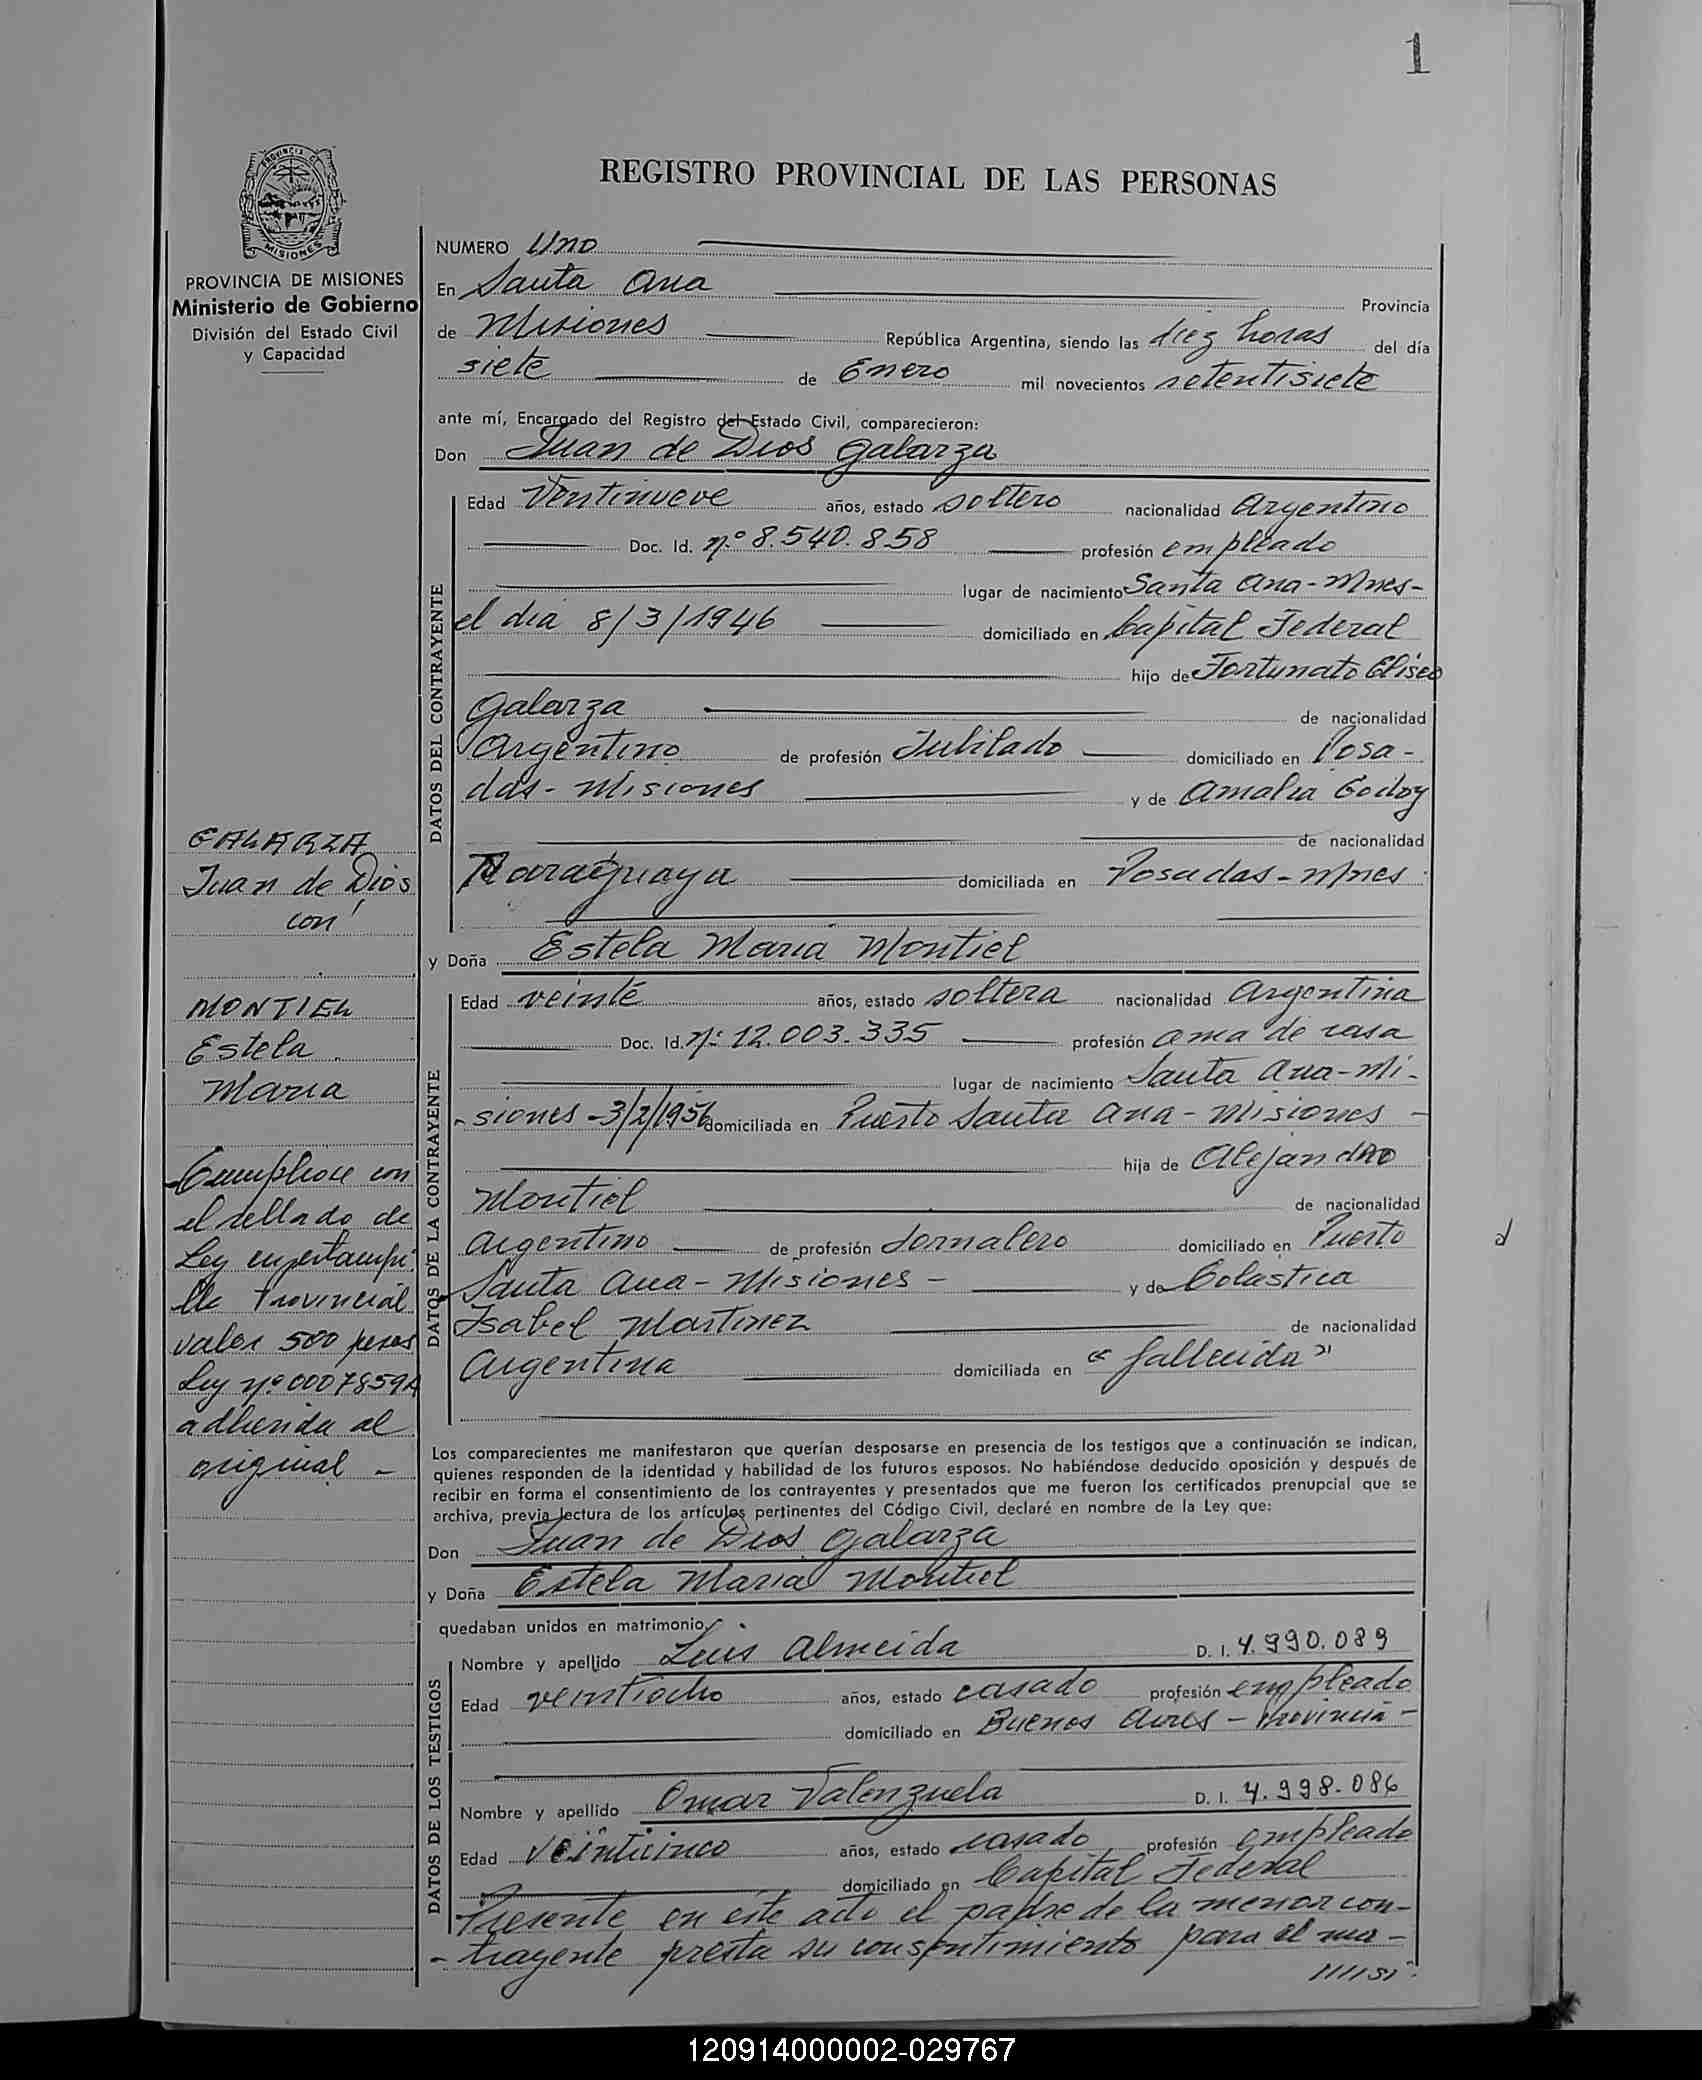 1
PROVINCIA DE
MISIONES
PROVINCIA DE MISIONES
Ministerio de Gobierno
División del Estado Civil
y Capacidad
GALARZA
Juan de Dios
con
MONTIEL
Estela
Maria
Cumplese con
el sellado de
Ley en estampi
lla Provincial
valor 500 pesos
Ley nº 0007859A
adherida al
original -
REGISTRO PROVINCIAL DE LAS PERSONAS
NUMERO Uno
En Santa Ana Provincia
de Misiones República Argentina, siendo las diez horas del día
siete de Enero mil novecientos setentisiete
ante mí, Encargado del Registro del Estado Civil, comparecieron:
Don Juan de Dios Galarza
DATOS DEL CONTRAYENTE
Edad Ventinueve años, estado soltero nacionalidad Argentino
Doc. Id. nº 8.540.858 profesión empleado
lugar de nacimiento Santa Ana - Mnes-
el dia 8/3/1946 domiciliado en Capital Federal
hijo de Fortunato Eliseo
Galarza de nacionalidad
Argentino de profesión Jubilado domiciliado en Posa-
das - Misiones y de Amalia Godoy
de nacionalidad
Paraguaya domiciliada en Posadas - Mnes
y Doña Estela Maria Montiel
DATOS DE LA CONTRAYENTE
Edad veinte años, estado soltera nacionalidad Argentina
Doc. Id. nº 12.003.335 profesión ama de casa
lugar de nacimiento Santa Ana - Mi-
-siones - 3/2/1956 domiciliada en Puerto Santa Ana - Misiones -
hija de Alejandro
Montiel de nacionalidad
Argentino de profesión Jornalero domiciliado en Puerto
Santa Ana - Misiones - y de Colastica
Isabel Martinez de nacionalidad
Argentina domiciliada en "fallecida"
Los comparecientes me manifestaron que querían desposarse en presencia de los testigos que a continuación se indican,
quienes responden de la identidad y habilidad de los futuros esposos. No habiéndose deducido oposición y después de
recibir en forma el consentimiento de los contrayentes y presentados que me fueron los certificados prenupcial que se
archiva, previa lectura de los artículos pertinentes del Código Civil, declaré en nombre de la Ley que:
Don Juan de Dios Galarza
y Doña Estela Maria Montiel
quedaban unidos en matrimonio.
DATOS DE LOS TESTIGOS
Nombre y apellido Luis Almeida D. I. 4.990.089
Edad veintiocho años, estado casado profesión empleado
domiciliado en Buenos Aires - Provincia -
Nombre y apellido Omar Valenzuela D. I. 4.998.086
Edad Veinticinco años, estado casado profesión empleado
domiciliado en Capital Federal
Presente en este acto el padre de la menor con-
-trayente presta su consentimiento para el ma-
120914000002-029767